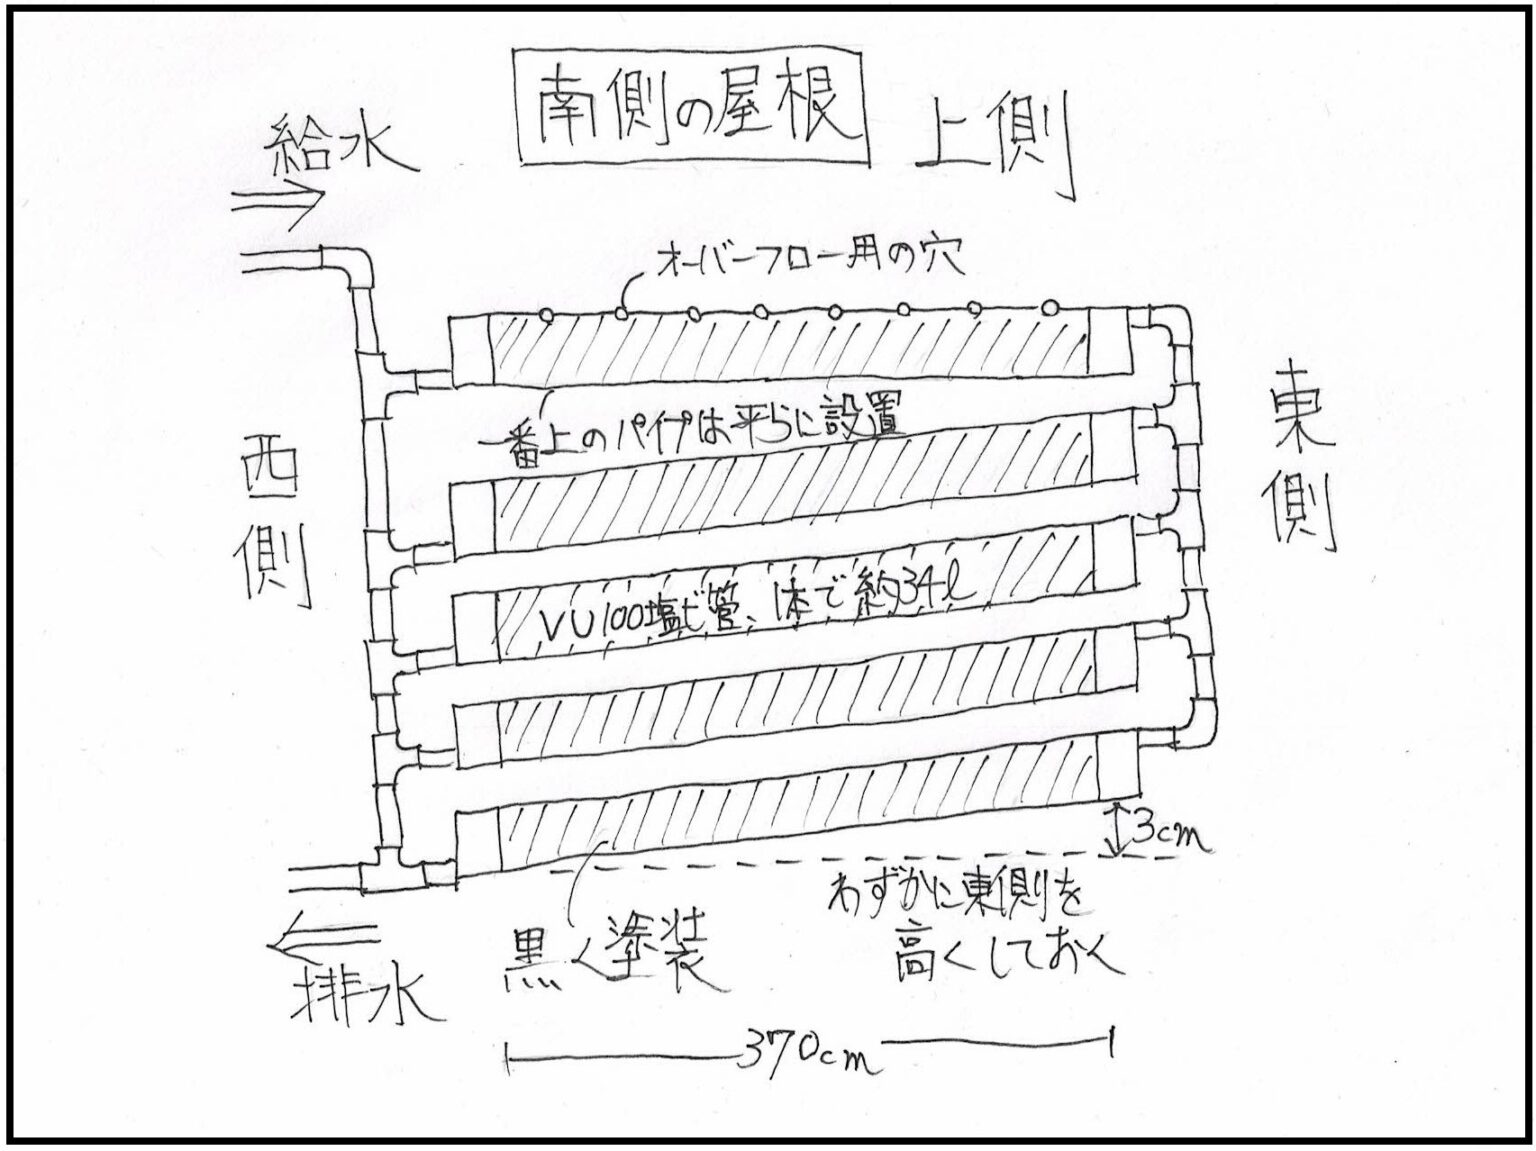 南側の屋根
上側
給水
オーバーフロー用の穴
一番上のパイプは平らに設置
西側
東側
VU100塩ビ管、1本で約34ℓ
3cm
わずかに東側を
高くしておく
黒く塗装
排水
370cm